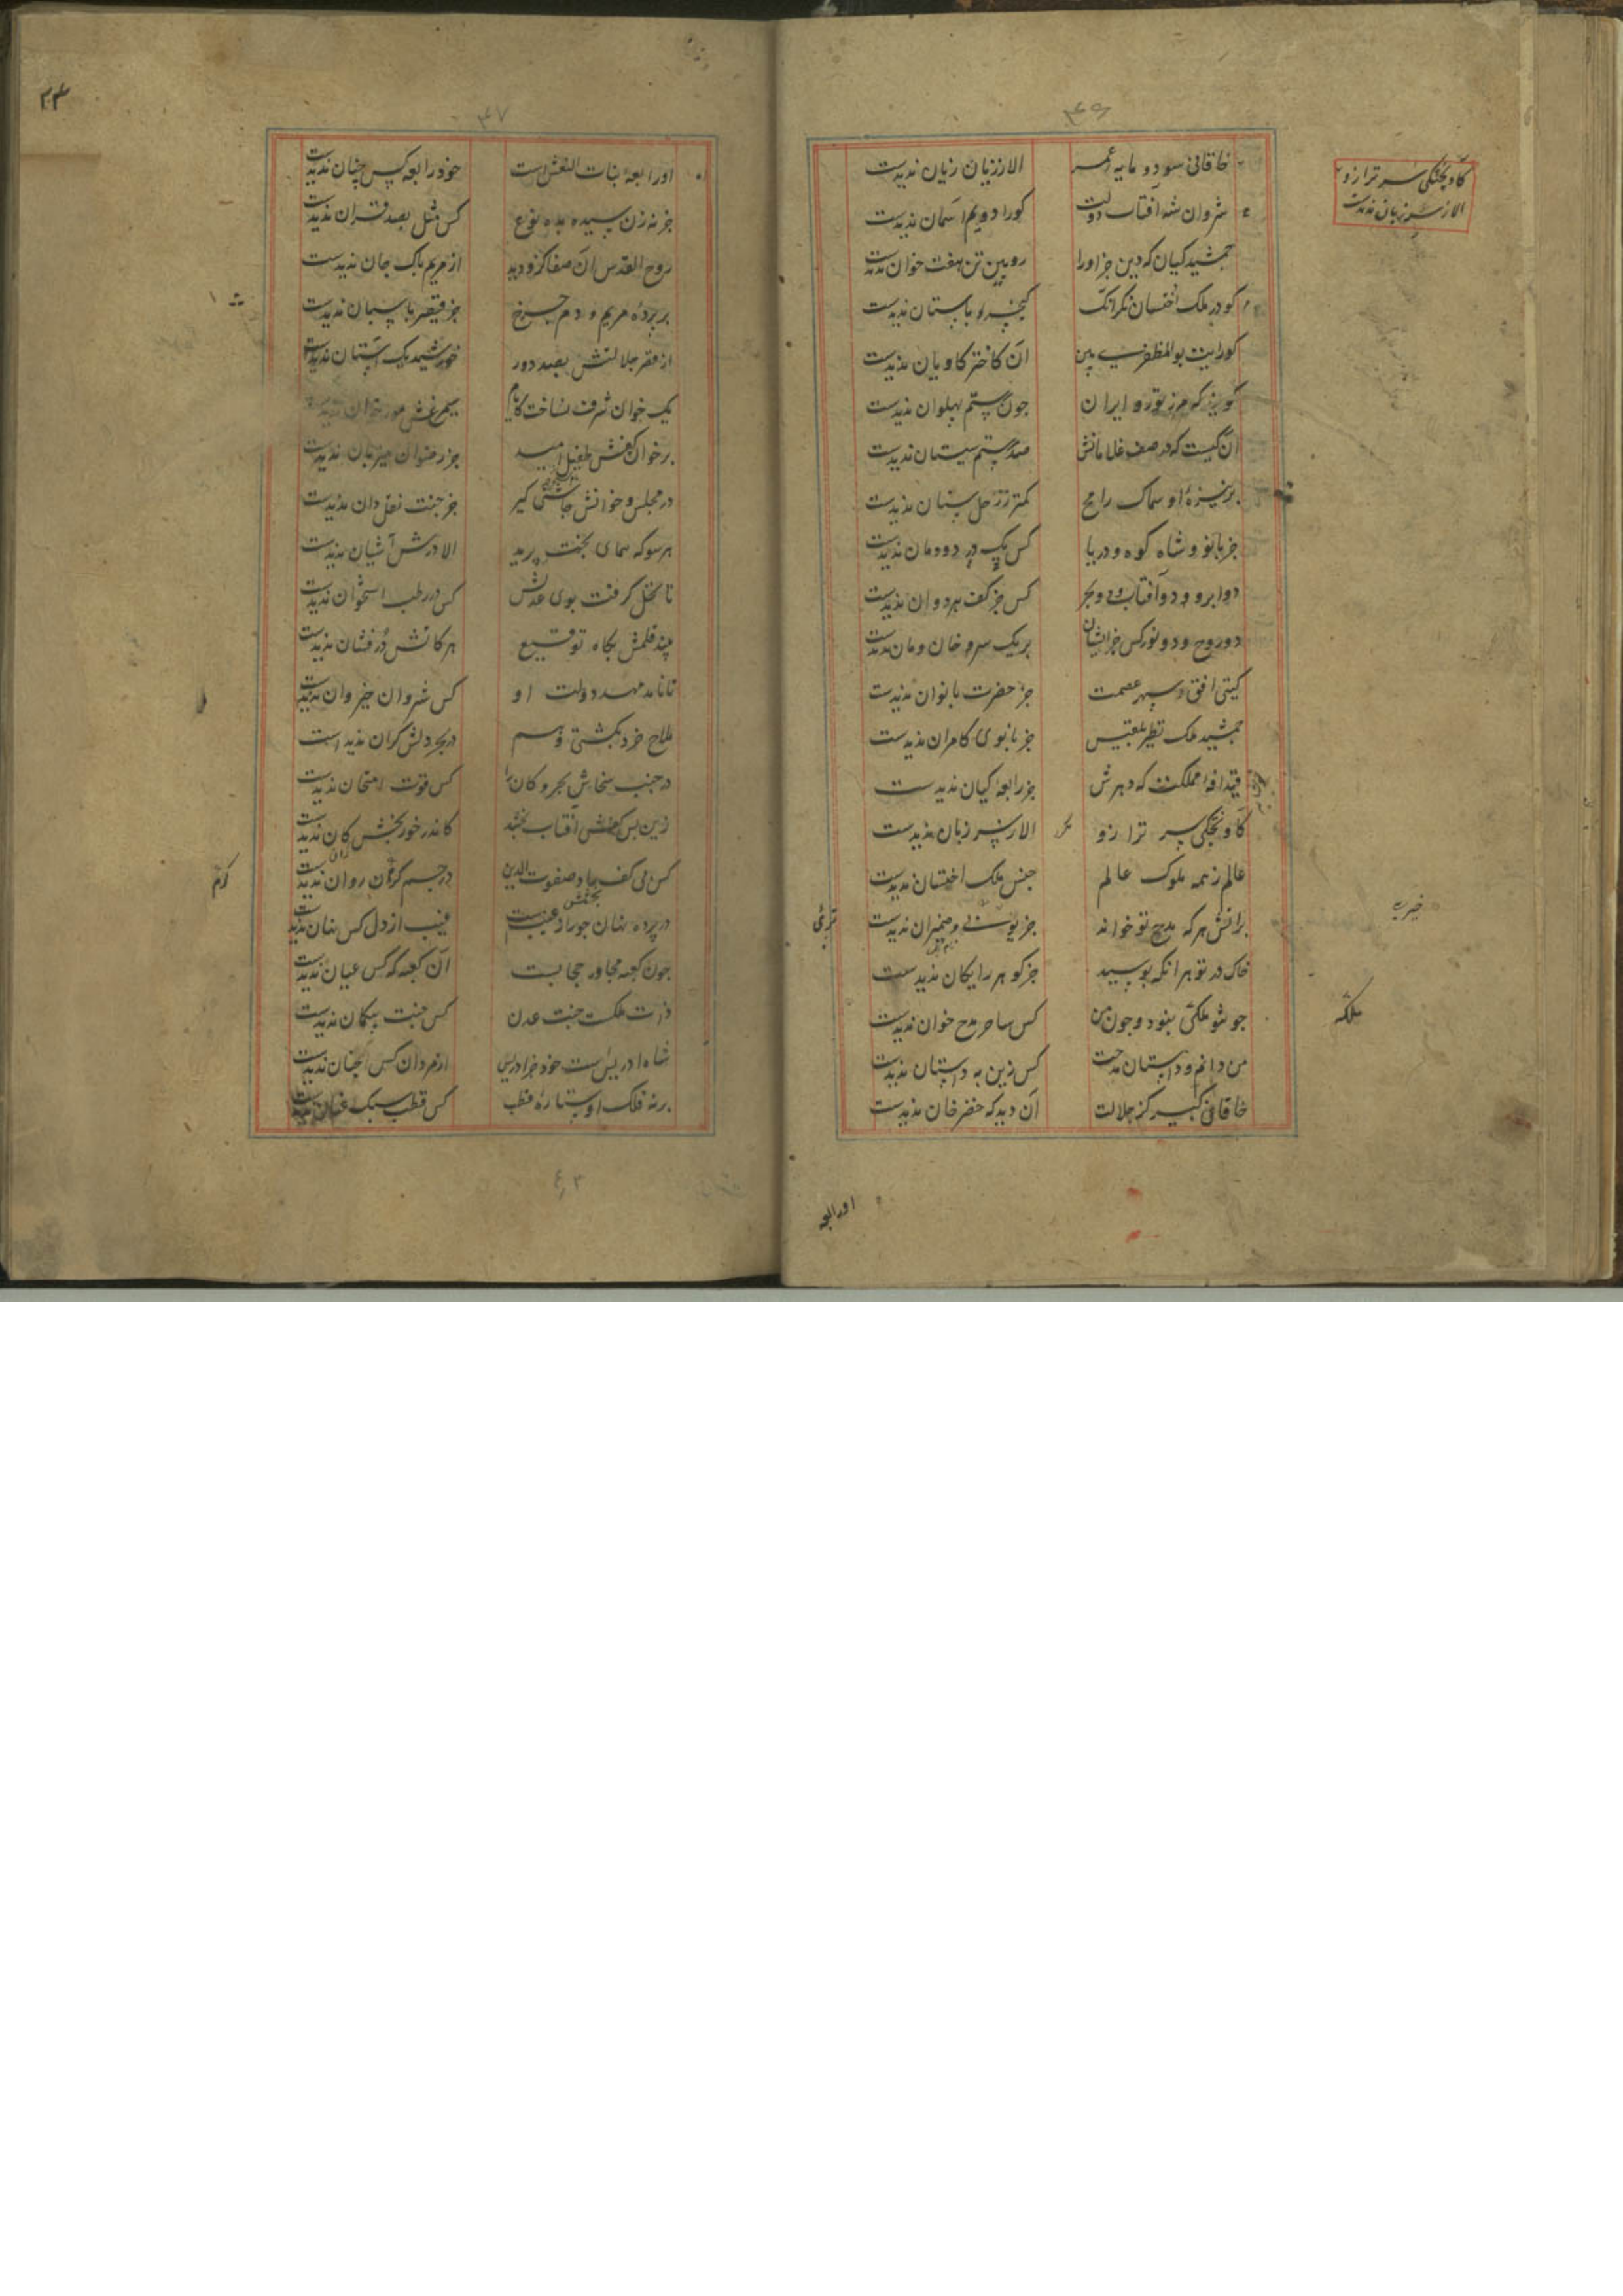 ۴۶
خاقانی سود و مایه عمر الا ز زیان زیان ندیدست
شروان شه آفتاب دولت کورا دویم آسمان ندیدست
جمشید کیان که دین جز اورا رویین تن هفت خوان ندیدست
کو در ملک اخسان نکرانک کیخسرو باستان ندیدست
کو رایت بوالمظفری بین آن کاختر کاویان ندیدست
کو بزکه مرز تور و ایران چون رستم پهلوان ندیدست
آن کیست که در صف غلامانش صد رستم سیستان ندیدست
بر نیزه او سماک رامح کمتر ز زحل سنان ندیدست
جز بانو و شاه کوه و دریا کس یک در دودمان ندیدست
دو ابر و دو آفتاب و دو بحر کس جز کف هر دوان ندیدست
دو روح و دو نور کس جز ایشان بر یک سر و خان و مان ندیدست
کیتی افق و سپهر عصمت جز حضرت بانوان ندیدست
جمشید ملک نظیر بلقیس جز بانوی کامران ندیدست
قیدافه مملکت که دهرش جز رابعه کیان ندیدست
کاویختکی سر ترازو الا ز سر زبان ندیدست
عالم ز همه ملوک عالم جنس ملک اخستان ندیدست
برانش هر که مدح تو خواند جز یوسف و ضمیران ندیدست
خاک در تو هر آنکه بوسید جز کوهر رایکان ندیدست
جو تو ملکی نبود و چون من کس ساحر مدح خوان ندیدست
من دانم و داستان مدحت کس زین به داستان ندیدست
خاقانی کبیر کز جلالت آن دید که خضرخان ندیدست
کاویختکی سر ترازو
الا ز سر زبان ندیدست
ملکه
اورابعه
۴۷
اورابعه بنات النعش است خود رابعه کس چنان ندیدست
جز نه زن سیده بده نوع کس مثل بصد قران ندیدست
روح القدس آن صفا کزو دید از مریم پاک جان ندیدست
بر پرده مریم دوم چرخ جز قیصر پاسبان ندیدست
از قصر جلالتش بصد دور خورشید یک آستان ندیدست
یک خوان شرف نساخت کایام سیمرغش مور خوان ندیدست
بر خوان کفش طفیل امید جز رضوان میزبان ندیدست
در مجلس و خوانش چاشنی کیر جز جنت نقل دان ندیدست
هر سو که همای بختش پرید الا درش آشیان ندیدست
تا نخل کرفت بوی عدلش کس در رطب استخوان ندیدست
چند قلمش بکاه توقیع هر کاتش در فشان ندیدست
تا نامد مهد دولت او کس شروان خیروان ندیدست
ملاح خرد بکشتی وهم در بحر دلش کران ندیدست
در جنب سخاش بحر و کان را کس قوت امتحان ندیدست
زین پس کفش آفتاب بخشد کاندر خور بخشش کان ندیدست
کس بی کف جاد صفوت الدین در جسم کرم روان ندیدست
در پرده نهان چو راد غیبست غیب از دل کس نهان ندید
چون کعبه مجاور حجابست آن کعبه که کس عیان ندیدست
ذات ملکست جنت عدن کس جنت بیکمان ندیدست
شاه ادریس است خود جز ادریس از مردان کس آنچنان ندیدست
بر نه فلک او ستاره قطب کس قطب سبک عنان ندیدست
کرم